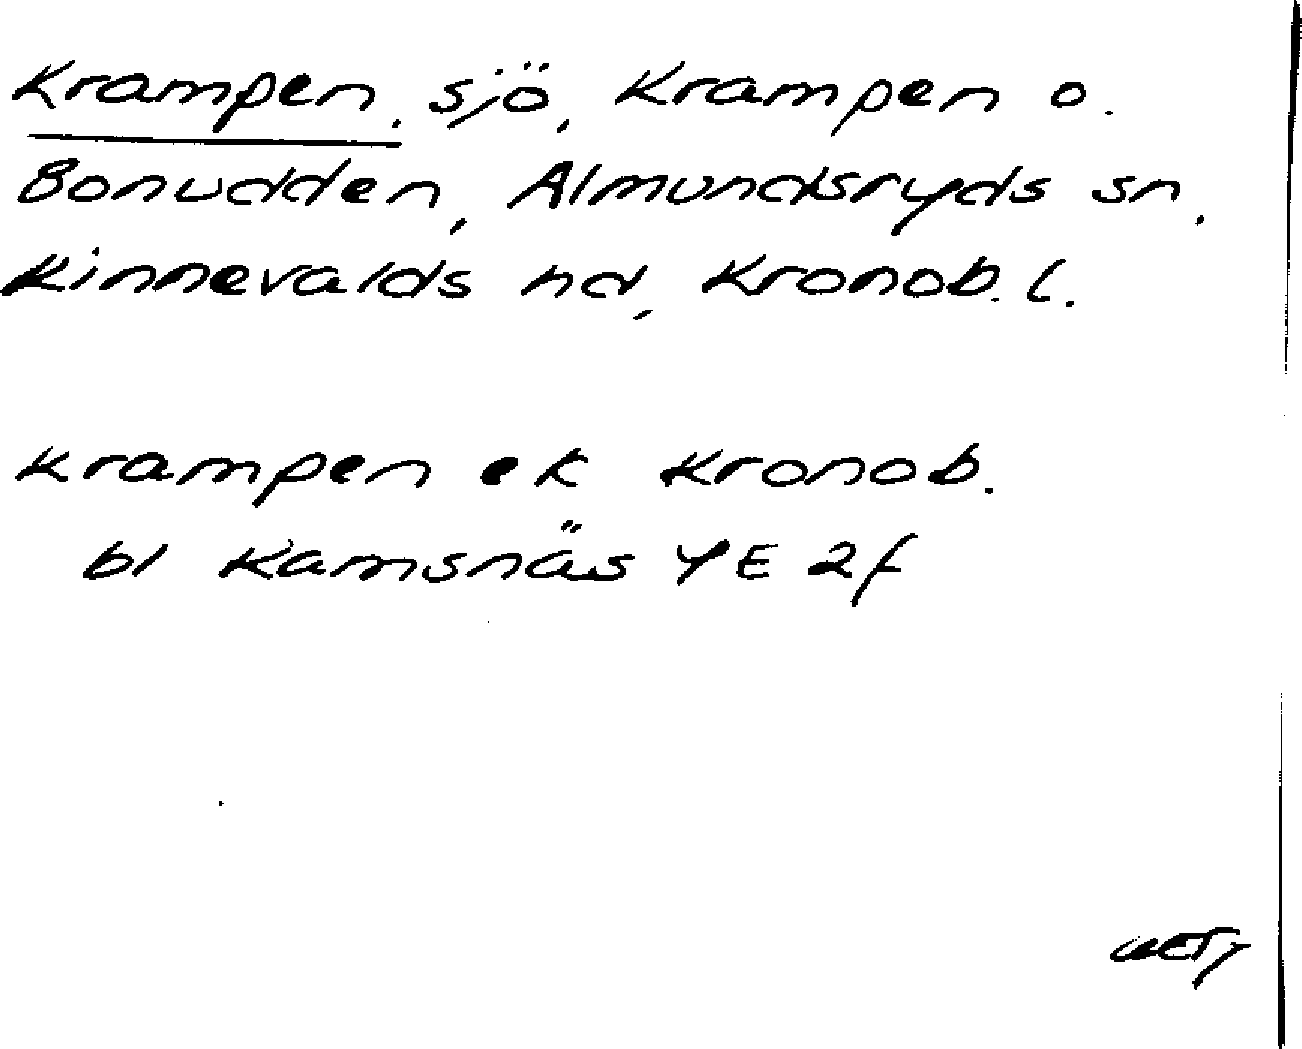 Krampen, sjö, Krampen o.
Bonudden, Almundsryds sn,
Kinnevalds hd, Kronob. l.
Krampen ek Kronob.
bl Kamsnäs 4E 2f